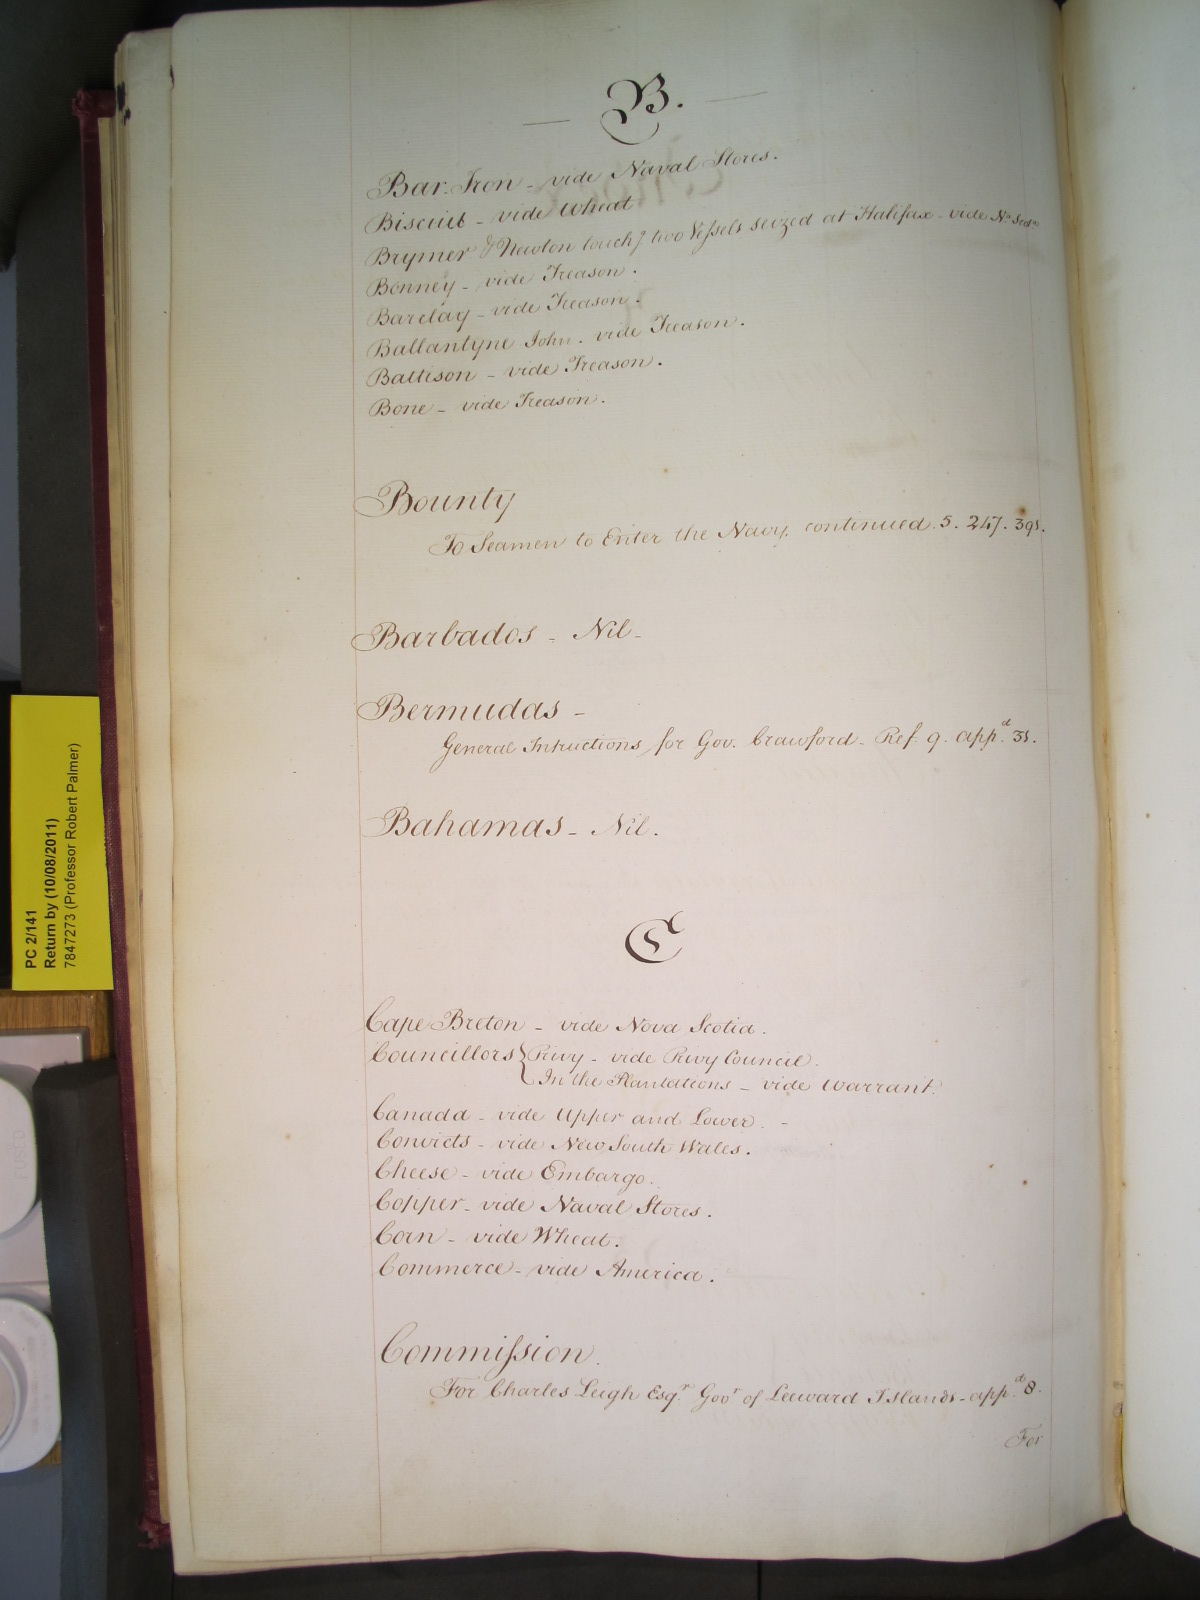 B.
Bar Iron - vide Naval Stores.
Biscuit - vide Wheat
Brymer & Newton touchg. two Vessels seized at Halifax - vide Na. Scota.
Bonney - vide Treason.
Barclay - vide Treason.
Ballantyne John. vide Treason.
Battison - vide Treason.
Bone - vide Treason.
Bounty
To Seamen to Enter the Navy, continued. 5. 247. 391.
Barbados - Nil -
Bermudas -
General Intructions for Gov. Crawford - Ref. 9. appd. 31.
Bahamas - Nil.
C
Cape Breton - vide Nova Scotia.
Councillors { Privy - vide Privy Council.
In the Plantations - vide Warrant.
Canada - vide Upper and Lower. -
Convicts - vide New South Wales.
Cheese - vide Embargo.
Copper - vide Naval Stores.
Corn - vide Wheat.
Commerce - vide America.
Commission.
For Charles Leigh Esqr. Govr. of Leeward Islands - appd. 8.
For
PC 2/141
Return by (10/08/2011)
7847273 (Professor Robert Palmer)